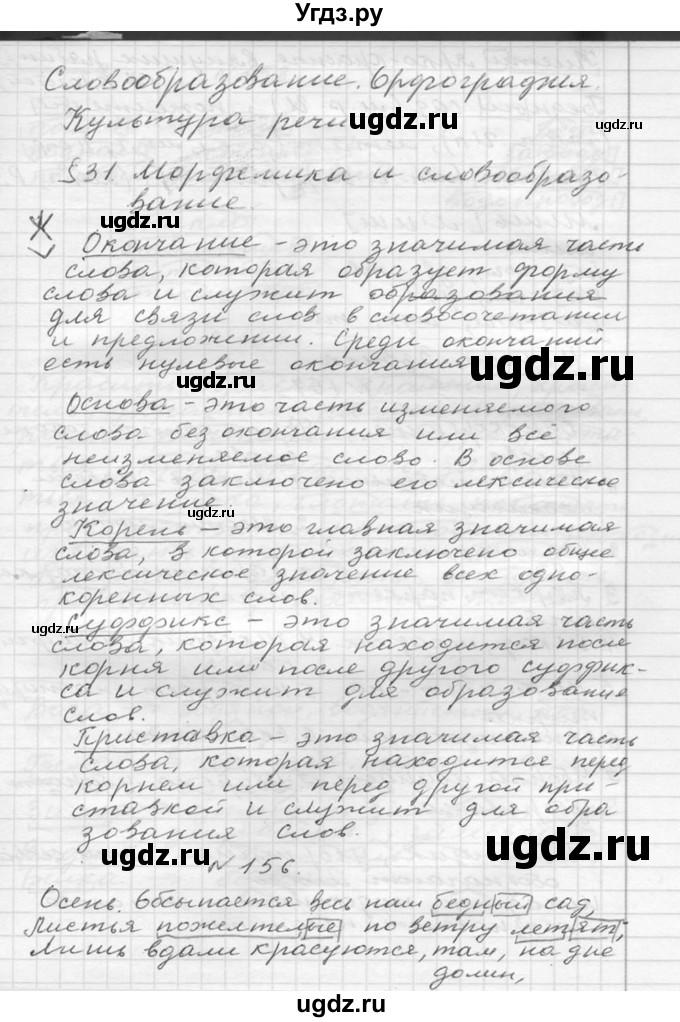 Угдз.ру
Словообразование. Орфография.
Культура речи
ugdz.ru
§31. Морфемика и словообразо-
вание.
ugdz.ru
Окончание – это значимая часть
слова, которая образует форму
слова и служит образования
для связи слов в словосочетании
и предложении. Среди окончаний
есть нулевые окончания
ugdz.ru
ugdz.ru
Основа – это часть изменяемого
слова без окончания или всё
неизменяемое слово. В основе
слова заключено его лексическое
значение.
ugdz.ru
Корень – это главная значимая
слова, в которой заключено общее
лексическое значение всех одно-
коренных слов.
ugdz.ru
Суффикс – это значимая часть
слова, которая находится после
корня или после другого суффик-
са и служит для образование
слов.
ugdz.ru
Приставка – это значимая часть
слова, которая находится перед
корнем или перед другой при-
ставкой и служит для обра
зования слов.
ugdz.ru
ugdz.ru
N 156.
Осень. Обсыпается весь наш бедный сад,
Листья пожелтелые по ветру летят;
Лишь вдали красуются, там, на дне
долин,
ugdz.ru
ugdz.ru